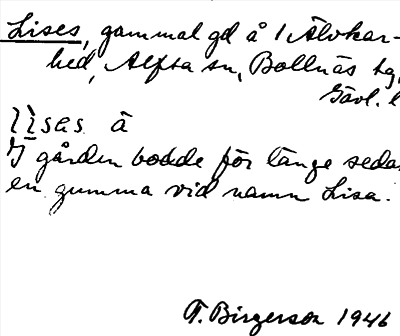 Lises, gammal gd å 1 Älvkar-
hed, Alfta sn, Bollnäs tg,
Gävl. l
lises å
I gården bodde för länge sedan
en gumma vid namn Lisa.
T. Birgerson 1946